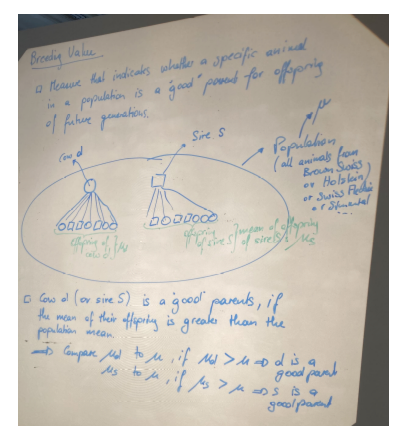 Breeding Value
□ Measure that indicates whether a specific animal
in a population is a "good" parent for offspring
of future generations.
μ
Sire S
Cow d
Population
(all animals from
Brown Swiss
or Holstein
or Swiss
or Simmental
offspring of
cow d } μd
offspring
of sire S } mean of offspring
of sire S : μs
□ Cow d (or sire S) is a "good" parents, if
the mean of their offspring is greater than the
population mean.
⇒ Compare μd to μ, if μd > μ ⇒ d is a
good parent
μs to μ, if μs > μ ⇒ s is a
good parent